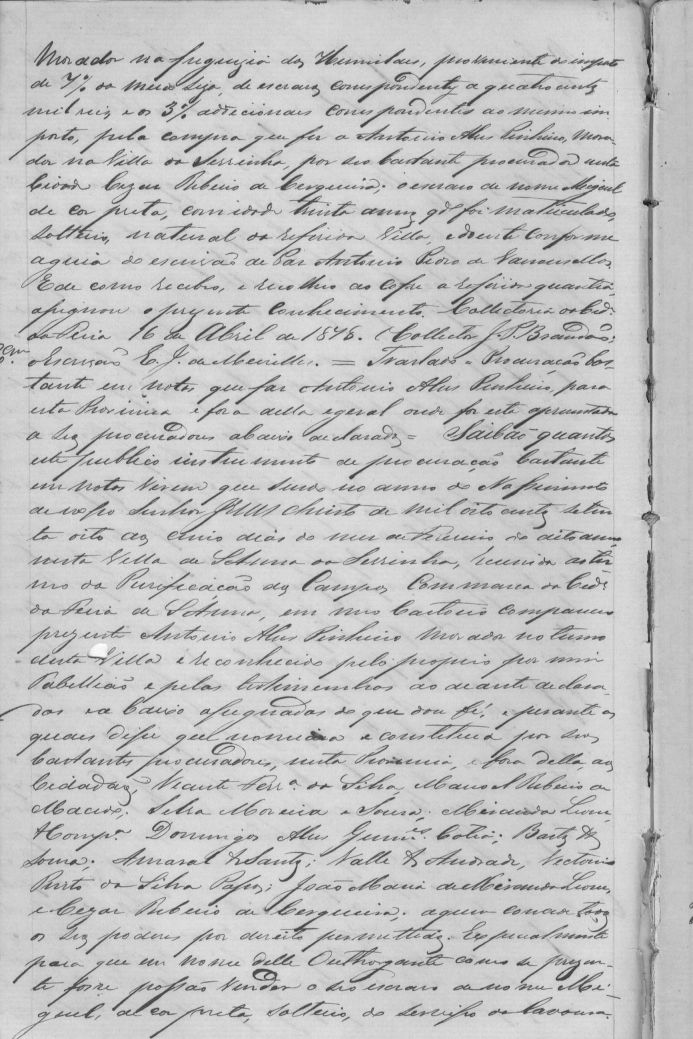 Morador na freguezia dos Humildes, proveniente do imposto
de 7% da meia siza, de escravos correspondentes a quatro centos
mil reis e os 3% addicionais correspondentes ao mesmo im
posto, pela compra que fez a Antonio Alves Pinheiro, mora-
dor na Villa da Serrinha, por seo bastante procurador nesta
Cidade Cezar Ribeiro de Cerqueira; o escravo de nome Miguel
de cor preta, com idade trinta annos qdo foi matriculado,
solteiro, natural da referida Villa, conforme
a guia do escrivão de Paz Antonio Pedro de Vasconsellos
E de como recebeo, e recolheo ao Cofre a referida quantia
assignou o prezente conhecimento. Collectoria da Cide
da Feira 16 de Abril de 1878. Collector J. P. Brandão,
o Escrivão E. J. de Meirelles. = Traslado = Procuração bas-
tante em notas que faz Antonio Alves Pinheiro, para
esta Provincia e fora della e geral onde for esta aprezentada
a seos procuradores abaixo declarados = Saibão quantos
este publico instrumento de procuração bastante
em notas virem que sendo no anno do Nascimento
de nosso Senhor Jesus Christo de mil oito centos seten
ta oito aos cinco dias do mez de Fevereiro do dito anno
nesta Villa de Sta Anna da Serrinha, reunida ao ter
mo da Purificação dos Campos Commarca da Cide
da Feira de Sta Anna, em meo Cartorio compareceo
prezente Antonio Alves Pinheiro morador no termo
desta Villa e reconhecido pelo proprio por mim
Tabellião e pelas testimunhas ao deante declara-
das e abaixo assignadas do que dou fé, e perante as
quais disse que nomeava e constituia por seos
bastantes procuradores, nesta Provincia, e fora della, aos
Cidadãos Vicente Ferra da Silva, Manoel Ribeiro de
Macedo, Silva Moreira e Souza, Miranda Leone
& Compa Domingos Alves Guims Cotia; Bastos &
Souza; Amaral & Santos; Valle & Andrade, Victorino
Porto da Silva Passos; João Maria de Miranda Leone,
e Cezar Ribeiro de Cerqueira, a quem concede todos
os seos poderes por direito permettidos. Especialmente
para que em nome delle Outhorgante como se prezen-
te fosse possão vender o seo escravo de nome Mi-
guel, de cor preta, solteiro, do serviço da lavoura.